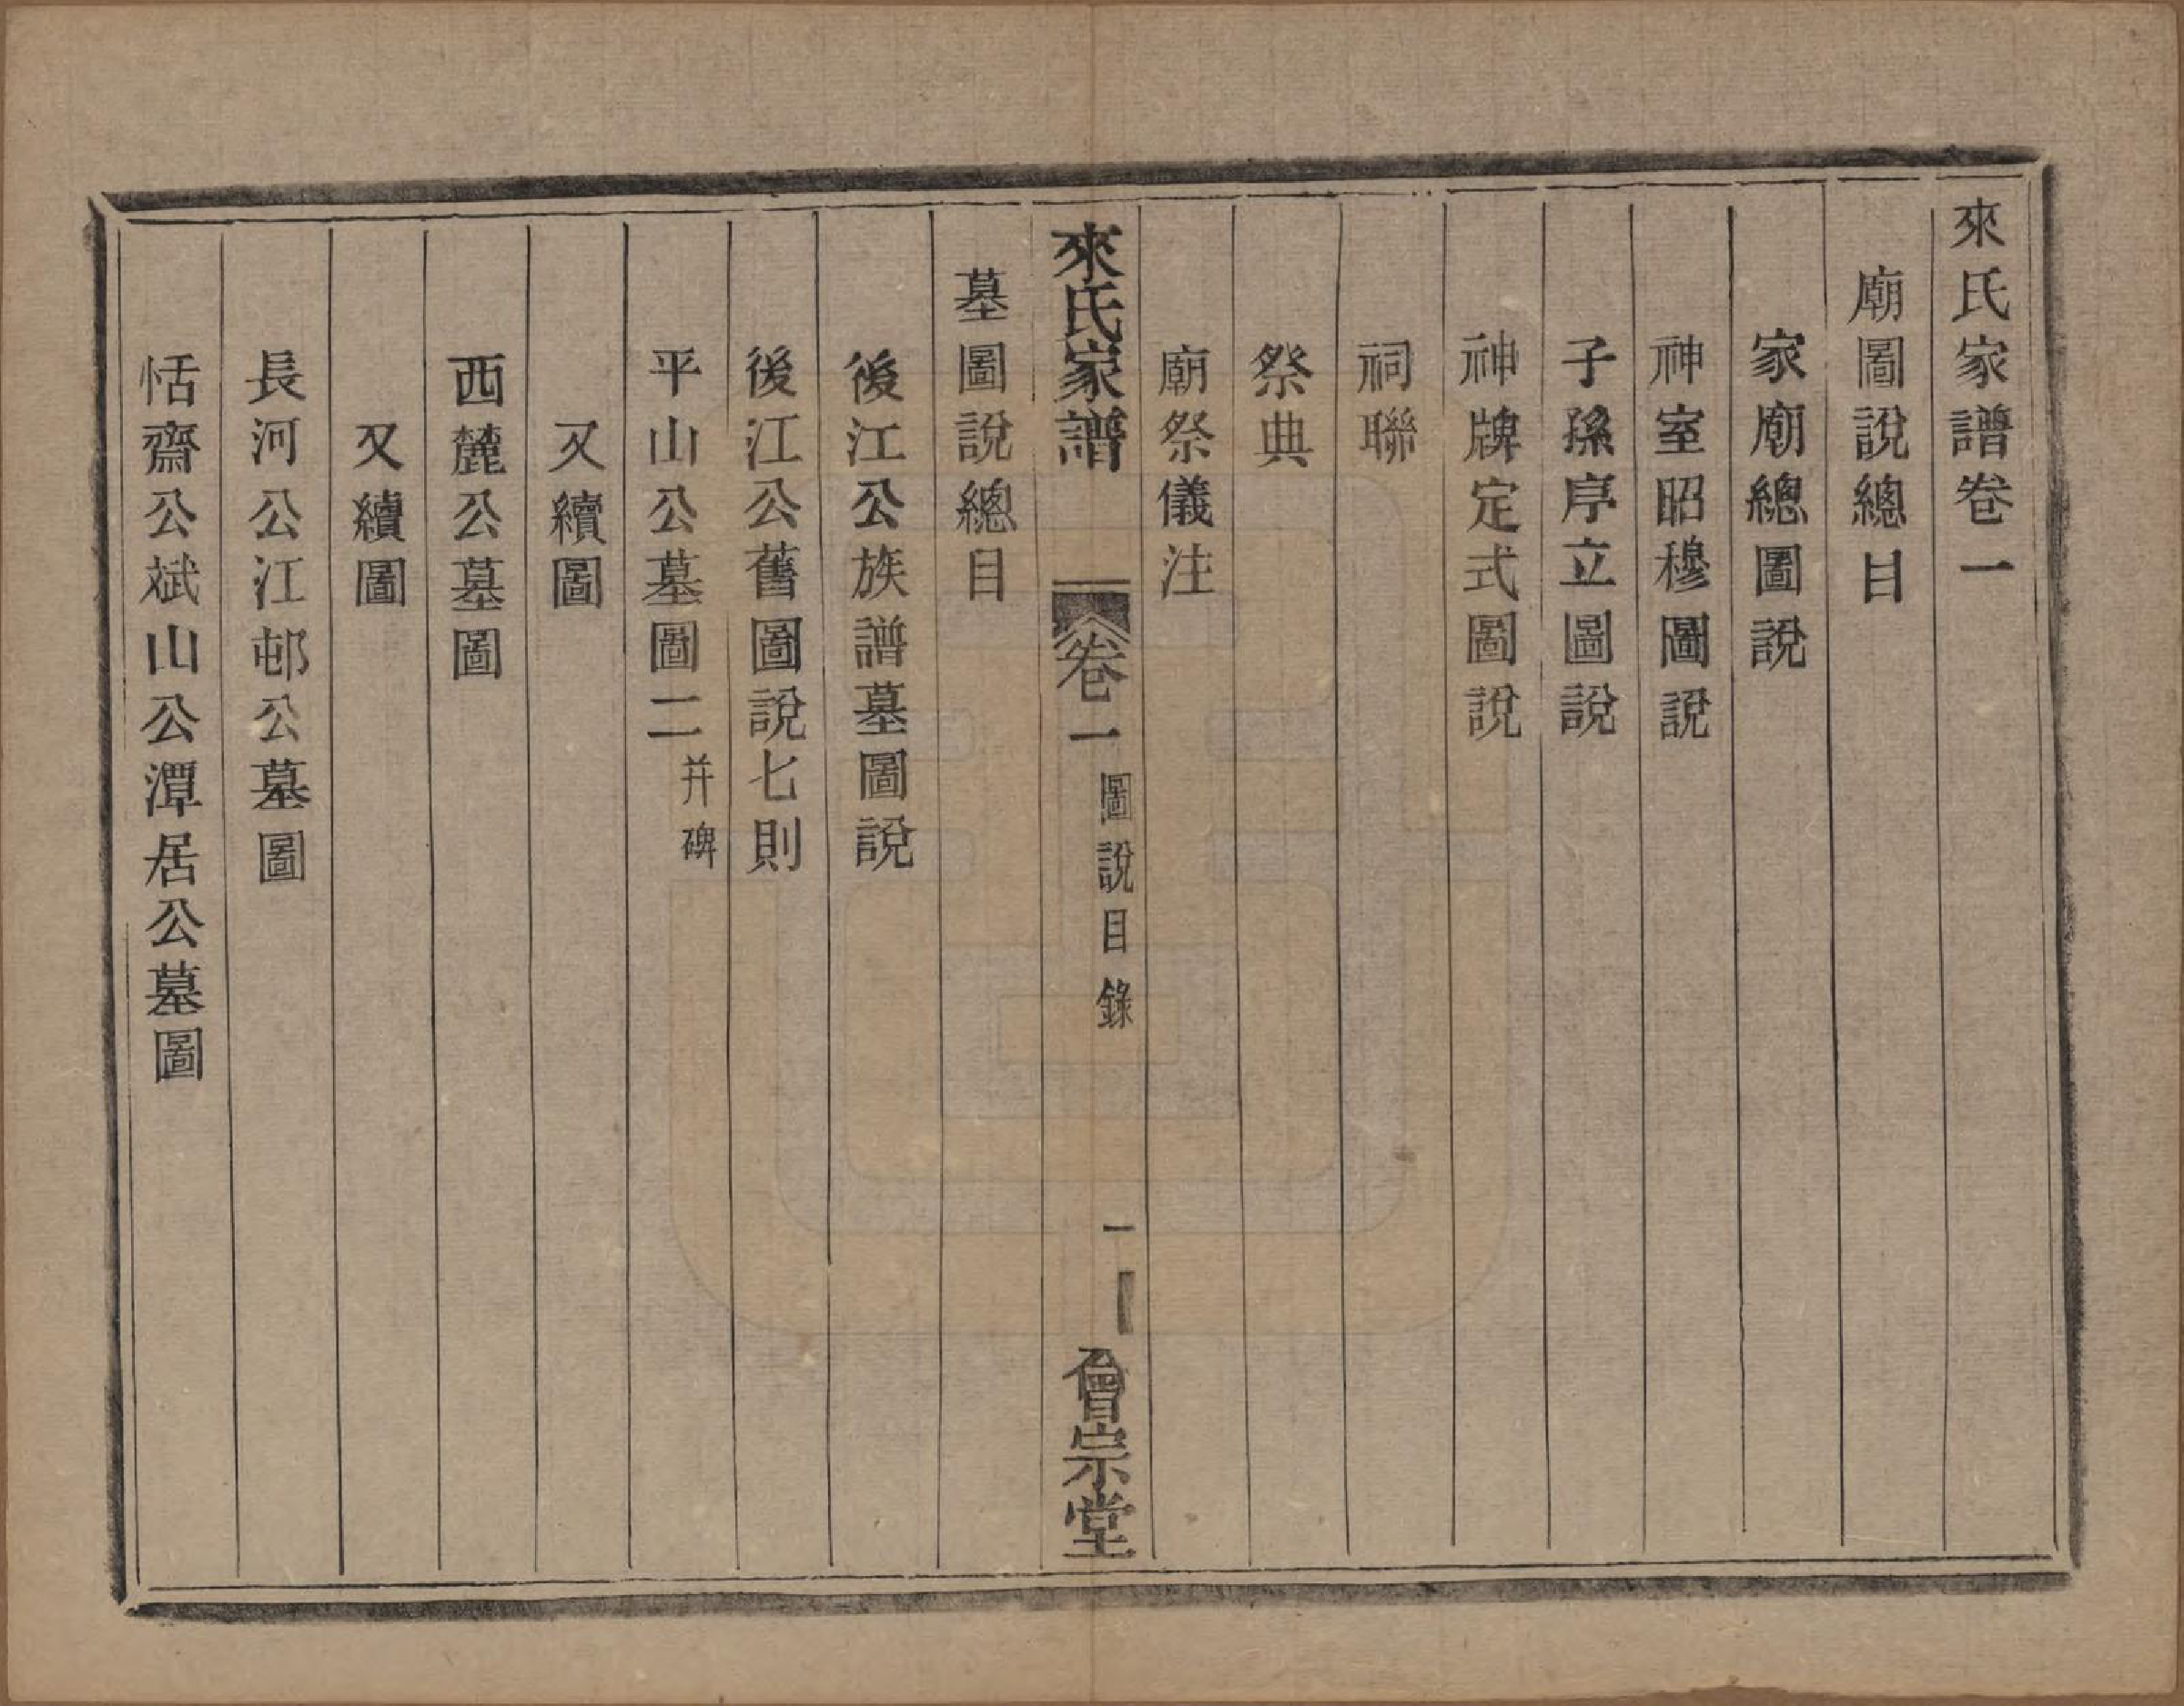 來氏家譜卷一
廟圖說總目
家廟總圖說
神室昭穆圖說
子孫序立圖說
神牌定式圖說
祠聯
祭典
廟祭儀注
來氏家譜 卷一 圖說目錄 一 會宗堂
墓圖說總目
後江公族譜墓圖說
後江公舊圖說七則
平山公墓圖二并碑
又續圖
西麓公墓圖
又續圖
長河公江邨公墓圖
恬齋公斌山公潭居公墓圖